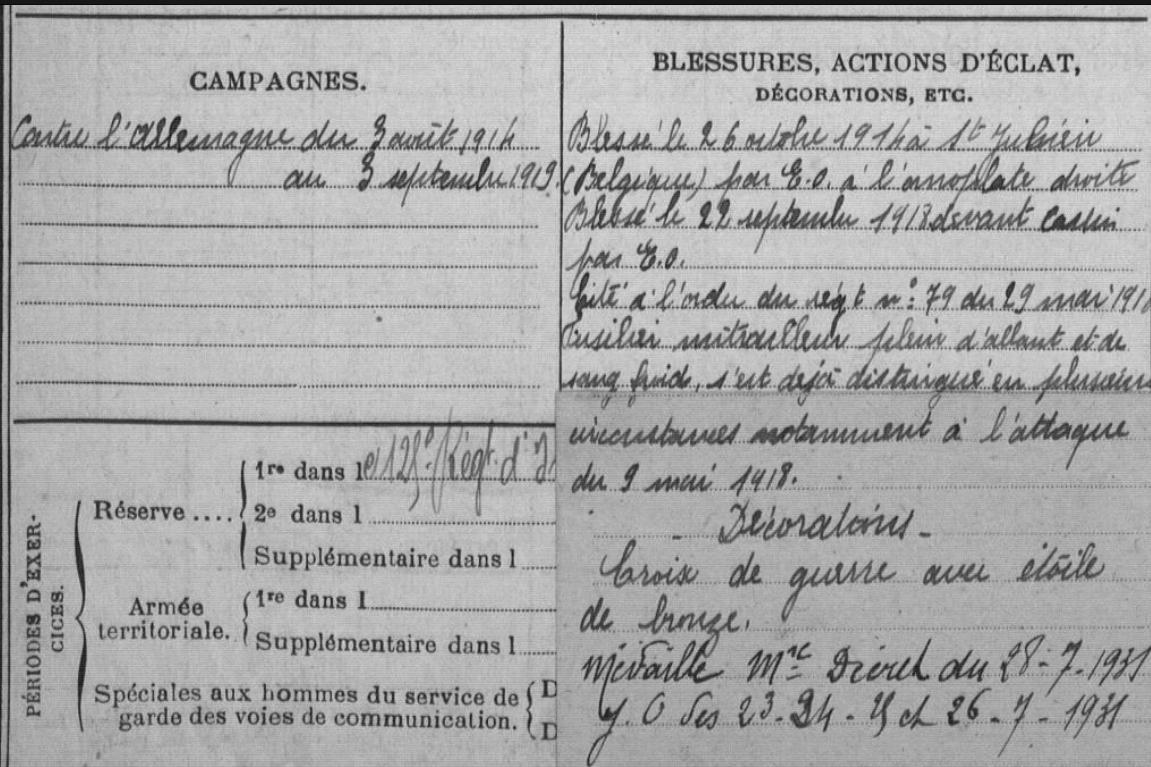 CAMPAGNES.
Contre l'Allemagne du 3 août 1914
au 3 septembre 1919.
BLESSURES, ACTIONS D'ÉCLAT,
DÉCORATIONS, ETC.
Blessé le 26 octobre 1914 à St Julien
(Belgique) par E.O. à l'omoplate droite
Blessé le 22 septembre 1918 devant
par E.O.
Cité à l'ordre du régt n°: 79 du 29 mai 191
Fusilier mitrailleur plein d'allant et de
sang froid, s'est dejà distingué en plusieurs
circonstances notamment à l'attaque
du 9 mai 1918.
- Décorations -
Croix de guerre avec étoile
de bronze.
Médaille Mre Décret du 28-7-1931
J.O des 23-24-25 et 26-7-1931
PÉRIODES D'EXER-
CICES.
Réserve ....
1re dans l Régt. d'I
2e dans l
Supplémentaire dans l
Armée
territoriale.
1re dans l
Supplémentaire dans l
Spéciales aux hommes du service de
garde des voies de communication.
D
D